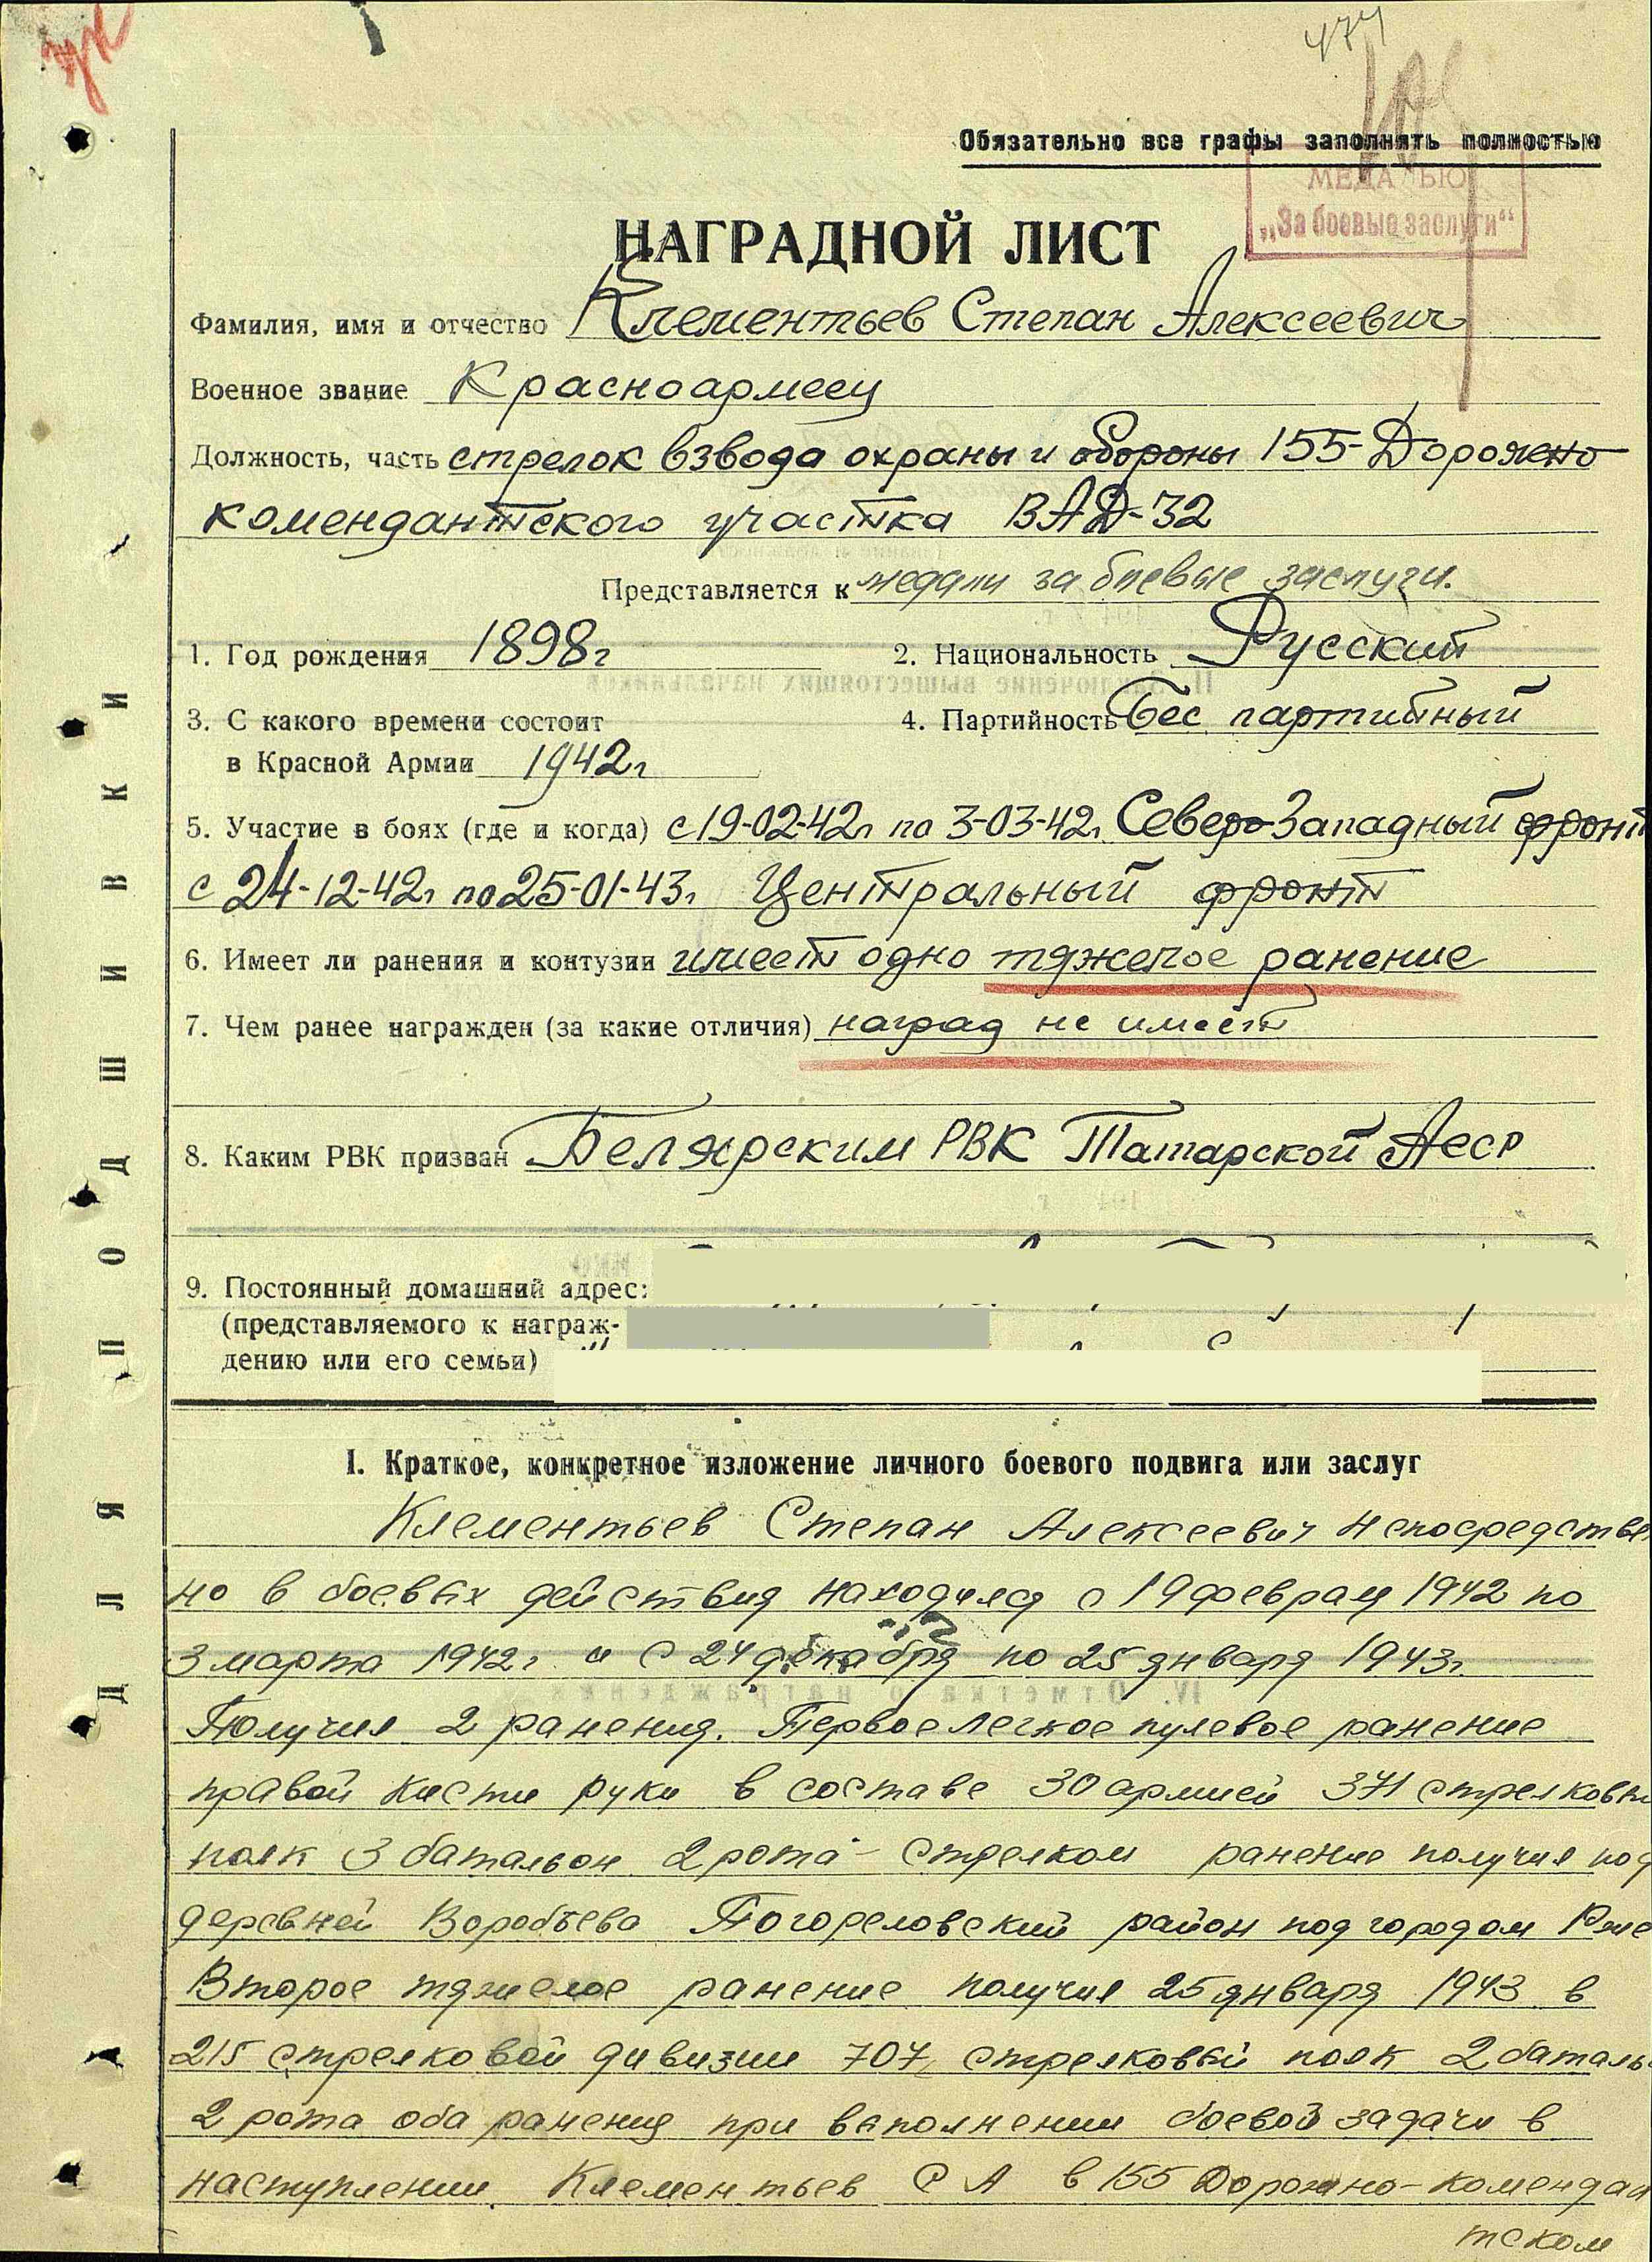 474
Обязательно все графы заполнять полностью
МЕДАЛЬЮ
„За боевые заслуги“
НАГРАДНОЙ ЛИСТ
Фамилия, имя и отчество Клементьев Степан Алексеевич
Военное звание Красноармеец
Должность, часть стрелок взвода охраны и обороны 155-Дорожно
комендантского участка ВАД-32
Представляется к медали за боевые заслуги.
1. Год рождения 1898г
2. Национальность Русский
3. С какого времени состоит
в Красной Армии 1942г
4. Партийность Бес партийный
5. Участие в боях (где и когда) с 19-02-42г по 3-03-42г. Северо-Западный фронт
с 24-12-42г по 25-01-43г Центральный фронт
6. Имеет ли ранения и контузии имеет одно тяжелое ранение
7. Чем ранее награжден (за какие отличия) наград не имеет
8. Каким РВК призван Белярским РВК Татарской Аеср
9. Постоянный домашний адрес:
(представляемого к награж-
дению или его семьи)
ДЛЯ ПОДШИВКИ
I. Краткое, конкретное изложение личного боевого подвига или заслуг
Клементьев Степан Алексеевич непосредствен
но в боевых действия находился с 19 февраля 1942 по
3 марта 1942г и с 24 декабря по 25 января 1943г.
Получил 2 ранения. Первое легкое пулевое ранение
правой кисти руки в составе 30 армией 371 стрелковы
полк 3 батальон 2 рота - стрелком ранение получил под
деревней Воробьево Погореловский район под городом
Второе тяжелое ранение получил 25 января 1943 в
215 стрелковой дивизии 707 стрелковый полк 2 баталь
2 рота оба ранения при выполнении боевой задачи в
наступлении. Клементьев С А в 155 Дорожно-комендан
тском